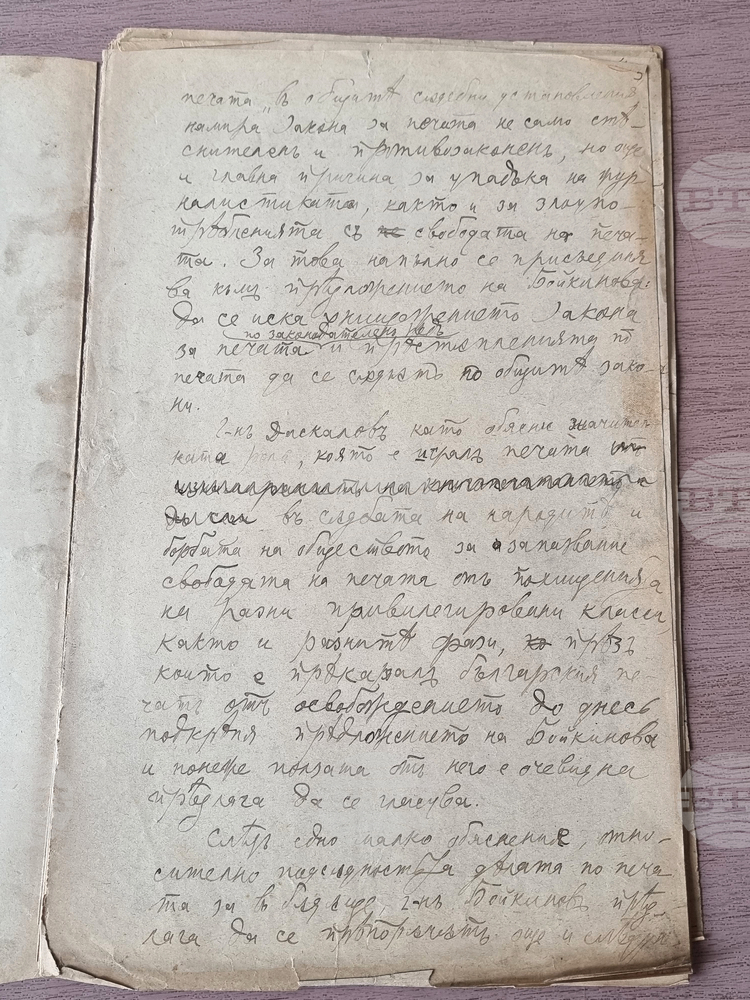 печата „въ общитѣ сѫдебни установления
намира Закона за печата не само стѣ-
снителенъ и противозаконенъ, но още
и главна причина за упадъка на жур
налистиката, както и за злоупо-
трѣбленията съ свободата на печа-
та. За това напълно се присъединя
ва къмъ прѣдложението на Бойкинова:
да се иска унищожението Закона
по законодателенъ редъ
за печата и прѣстѫпленията по
печата да се сѫдятъ по общитѣ зако-
ни.
Г-нъ Даскаловъ като обясни значител
ната роля, която е игралъ печата
въ сѫдбата на народитѣ и
борбата на обществото за запазвание
свободата на печата отъ похищенията
на разни привилегировани класи,
както и разнитѣ фази, прѣзъ
които е прѣкаралъ българския пе-
чатъ отъ освобождението до днесь
подкрѣпя прѣдложението на Бойкинова
и понеже ползата отъ него е очевидна
прѣдлага да се гласува.
Слѣдъ едно малко обяснение, отно-
сително подсѫдностьта дѣлата по печа
та за въ бѫдѫще, г-нъ Бойкиновъ прѣд-
лага да се прѣпорѫчатъ още и слѣдую
БТА